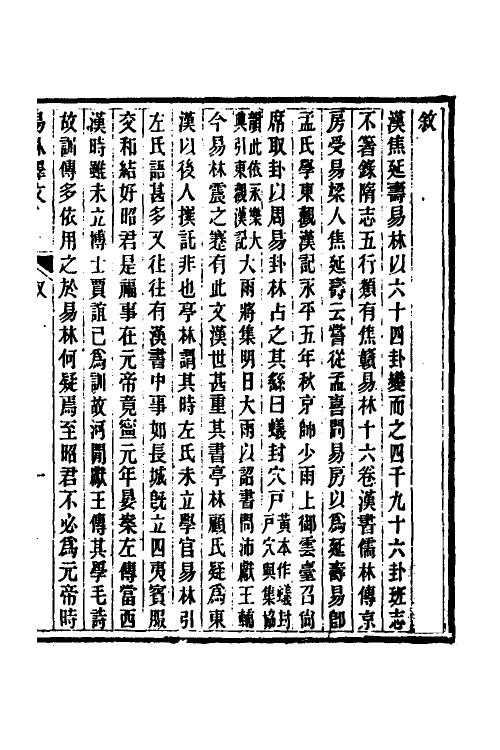 敘
漢焦延壽易林以六十四卦變而之四千九十六卦班志
不著錄隋志五行類有焦贛易林十六卷漢書儒林傳京
房受易梁人焦延壽云嘗從孟喜問易房以為延壽易卽
孟氏學東觀漢記永平五年秋京師少雨上御雲臺召尙
席取卦以周易卦林占之其繇曰蟻封穴戶黃本作蟻封戶穴與集協
韻此依永樂大典引東觀漢記大雨將集明日大雨以詔書問沛獻王輔
今易林震之蹇有此文漢世甚重其書亭林顧氏疑為東
漢以後人撰託非也亭林謂其時左氏未立學官易林引
左氏語甚多又往往有漢書中事如長城旣立四夷賓服
交和結好昭君是福事在元帝竟寧元年晏案左傳當西
漢時雖未立博士賈誼已為訓故河閒獻王傳其學毛詩
故訓傳多依用之於易林何疑焉至昭君不必為元帝時
易林釋文
敘
一